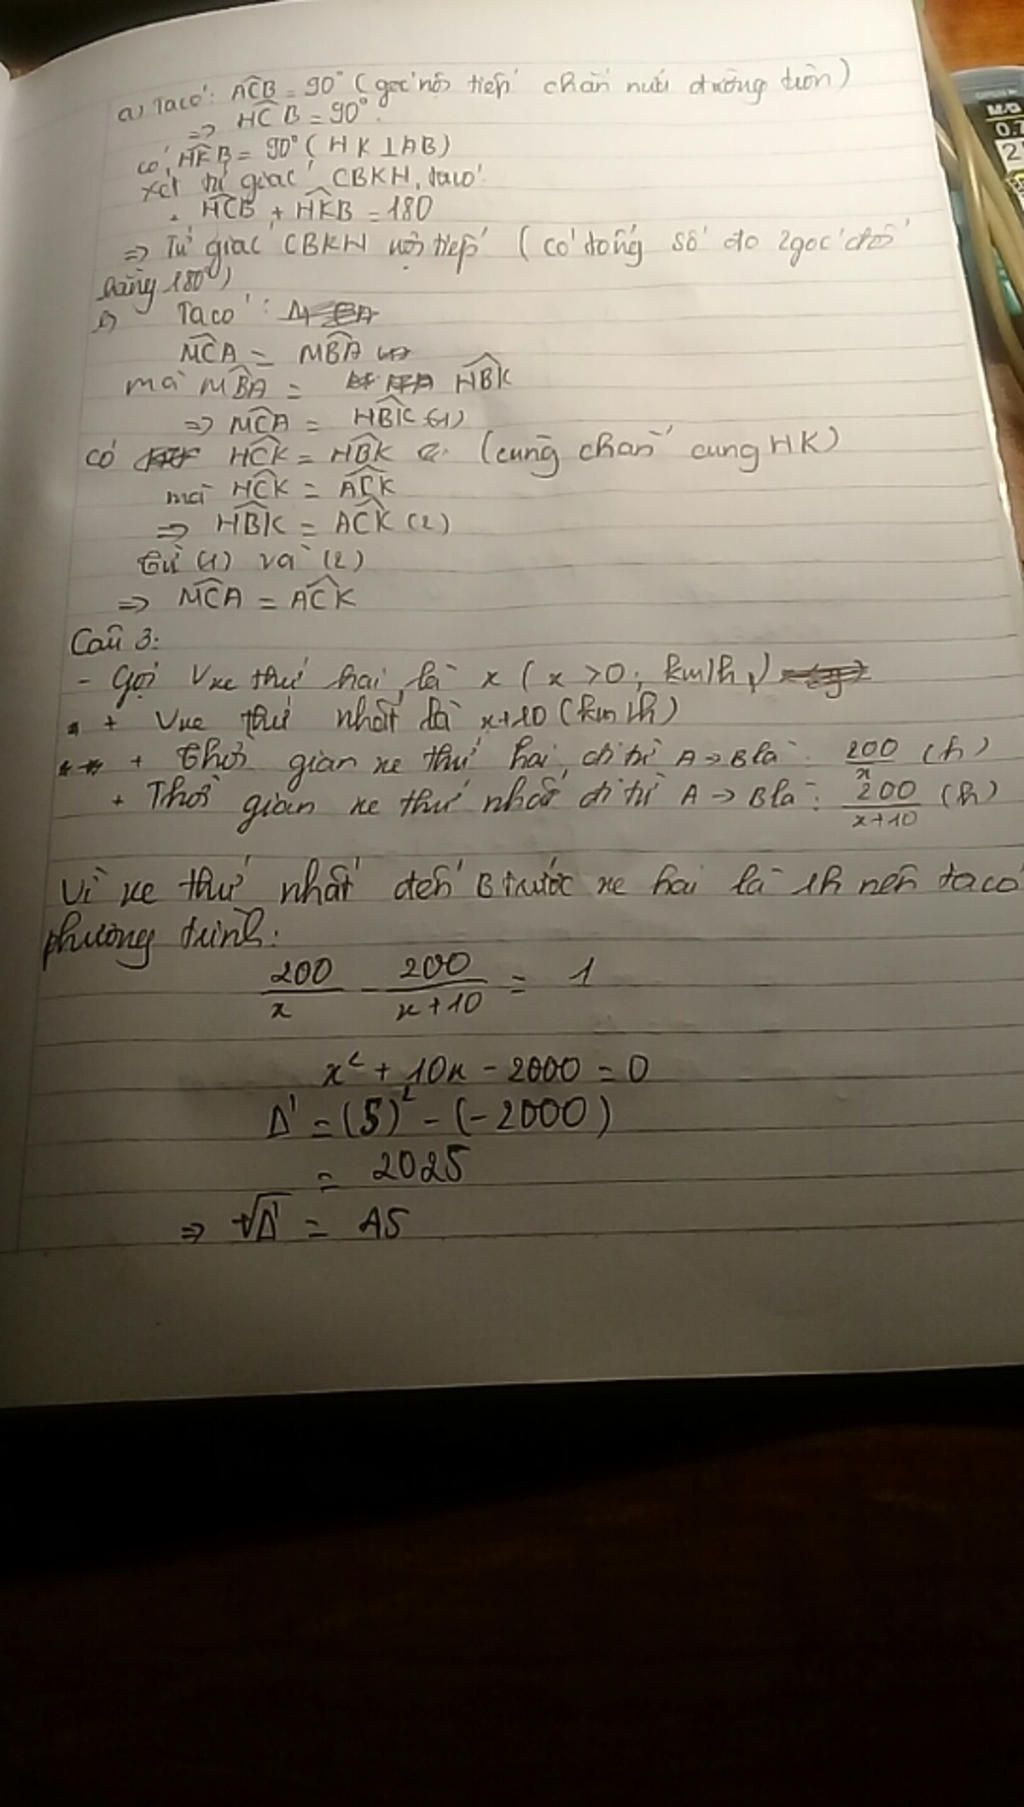 a) Ta có: ACB = 90° (góc nội tiếp chắn nửa đường tròn)
=> HCB = 90°
có HKB = 90° (HK ⊥ AB)
xét tứ giác CBKH, ta có:
HCB + HKB = 180
=> Tứ giác CBKH nội tiếp (có tổng số đo 2 góc đối
bằng 180°)
b) Ta có:
MCA = MBA
mà MBA = HBK
=> MCA = HBK (1)
có HCK = HBK (cùng chắn cung HK)
mà HCK = ACK
=> HBK = ACK (2)
từ (1) và (2)
=> MCA = ACK
Câu 3:
- Gọi Vxe thứ hai là x (x > 0; km/h)
+ Vxe thứ nhất là x+10 (km/h)
+ Thời gian xe thứ hai đi từ A -> B là: 200/x (h)
+ Thời gian xe thứ nhất đi từ A -> B là: 200/x+10 (h)
Vì xe thứ nhất đến B trước xe hai là 1h nên ta có
phương trình:
200/x - 200/x+10 = 1
x² + 10x - 2000 = 0
Δ' = (5)² - (-2000)
= 2025
=> √Δ' = 45
M/G
0.7
2